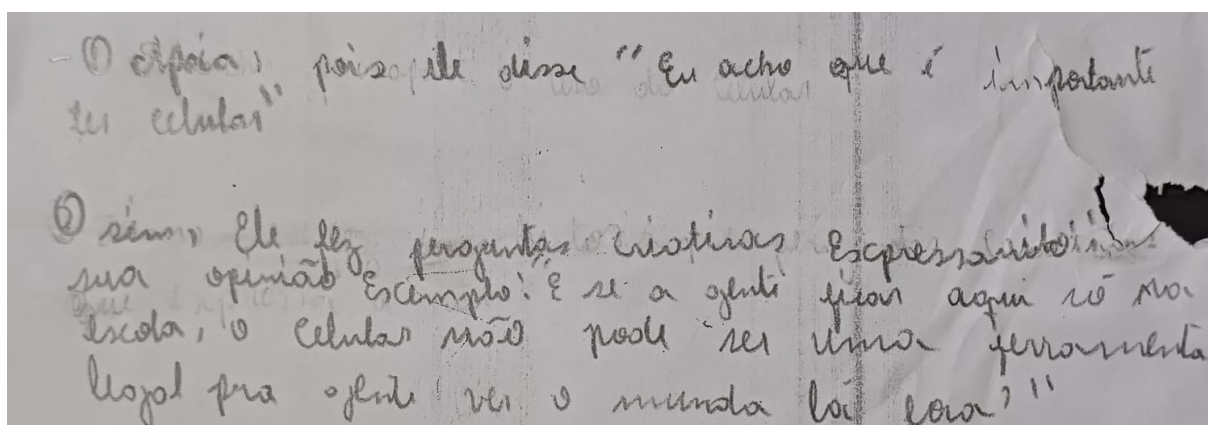 - ① Apoia, pois ele disse "Eu acho que é importante
ter celular"
② sim, Ele fez perguntas criativas Escpressando
sua opinião Escemplo: "E se a gente ficar aqui só na
escola, o celular não pode ser uma ferramenta
legal pra gente ver o mundo lá fora?"